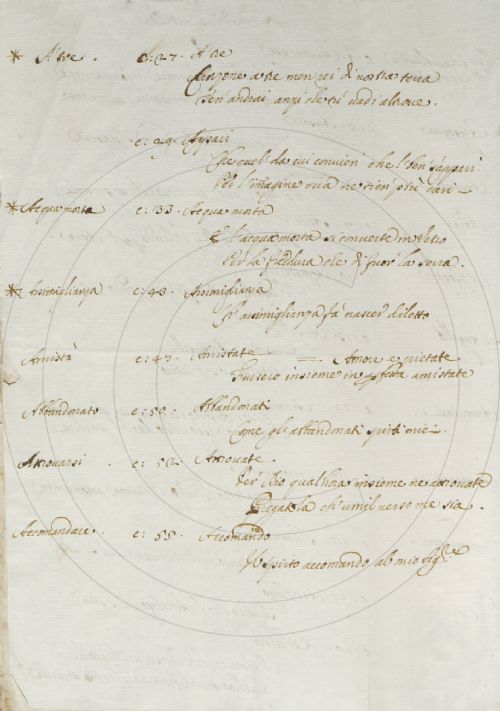 * A' Re . c: 27. A Re
Canzone a Re men vei di nostra terra
Ben andrai anzi che tu vadi altrove .
c: 29. Appari
Che quel da cui convien che 'l ben
Per l'imagine sua ne
* Acqua morta c: 33. Acqua morta
E l'acqua morta si converte in vetro
Per la freddura che di fuor la serra .
* Assimiglianza c: 43. Assimiglianza
Il assimiglianza fa nascer diletto
Amistà c: 47. Amistate = Amore e pietate
Fussero insieme in perfetta amistate
Abbandonato c: 50. Abbandonati
Come gli abbandonati spirti miei.
Arrovarsi c: 52. Arrovate.
Per Dio qualhora insieme ne arrovate
Pregatela ch'umil verso me sia .
Accomandare . c: 55. Accomando
spirto accomando al mio Sig.re